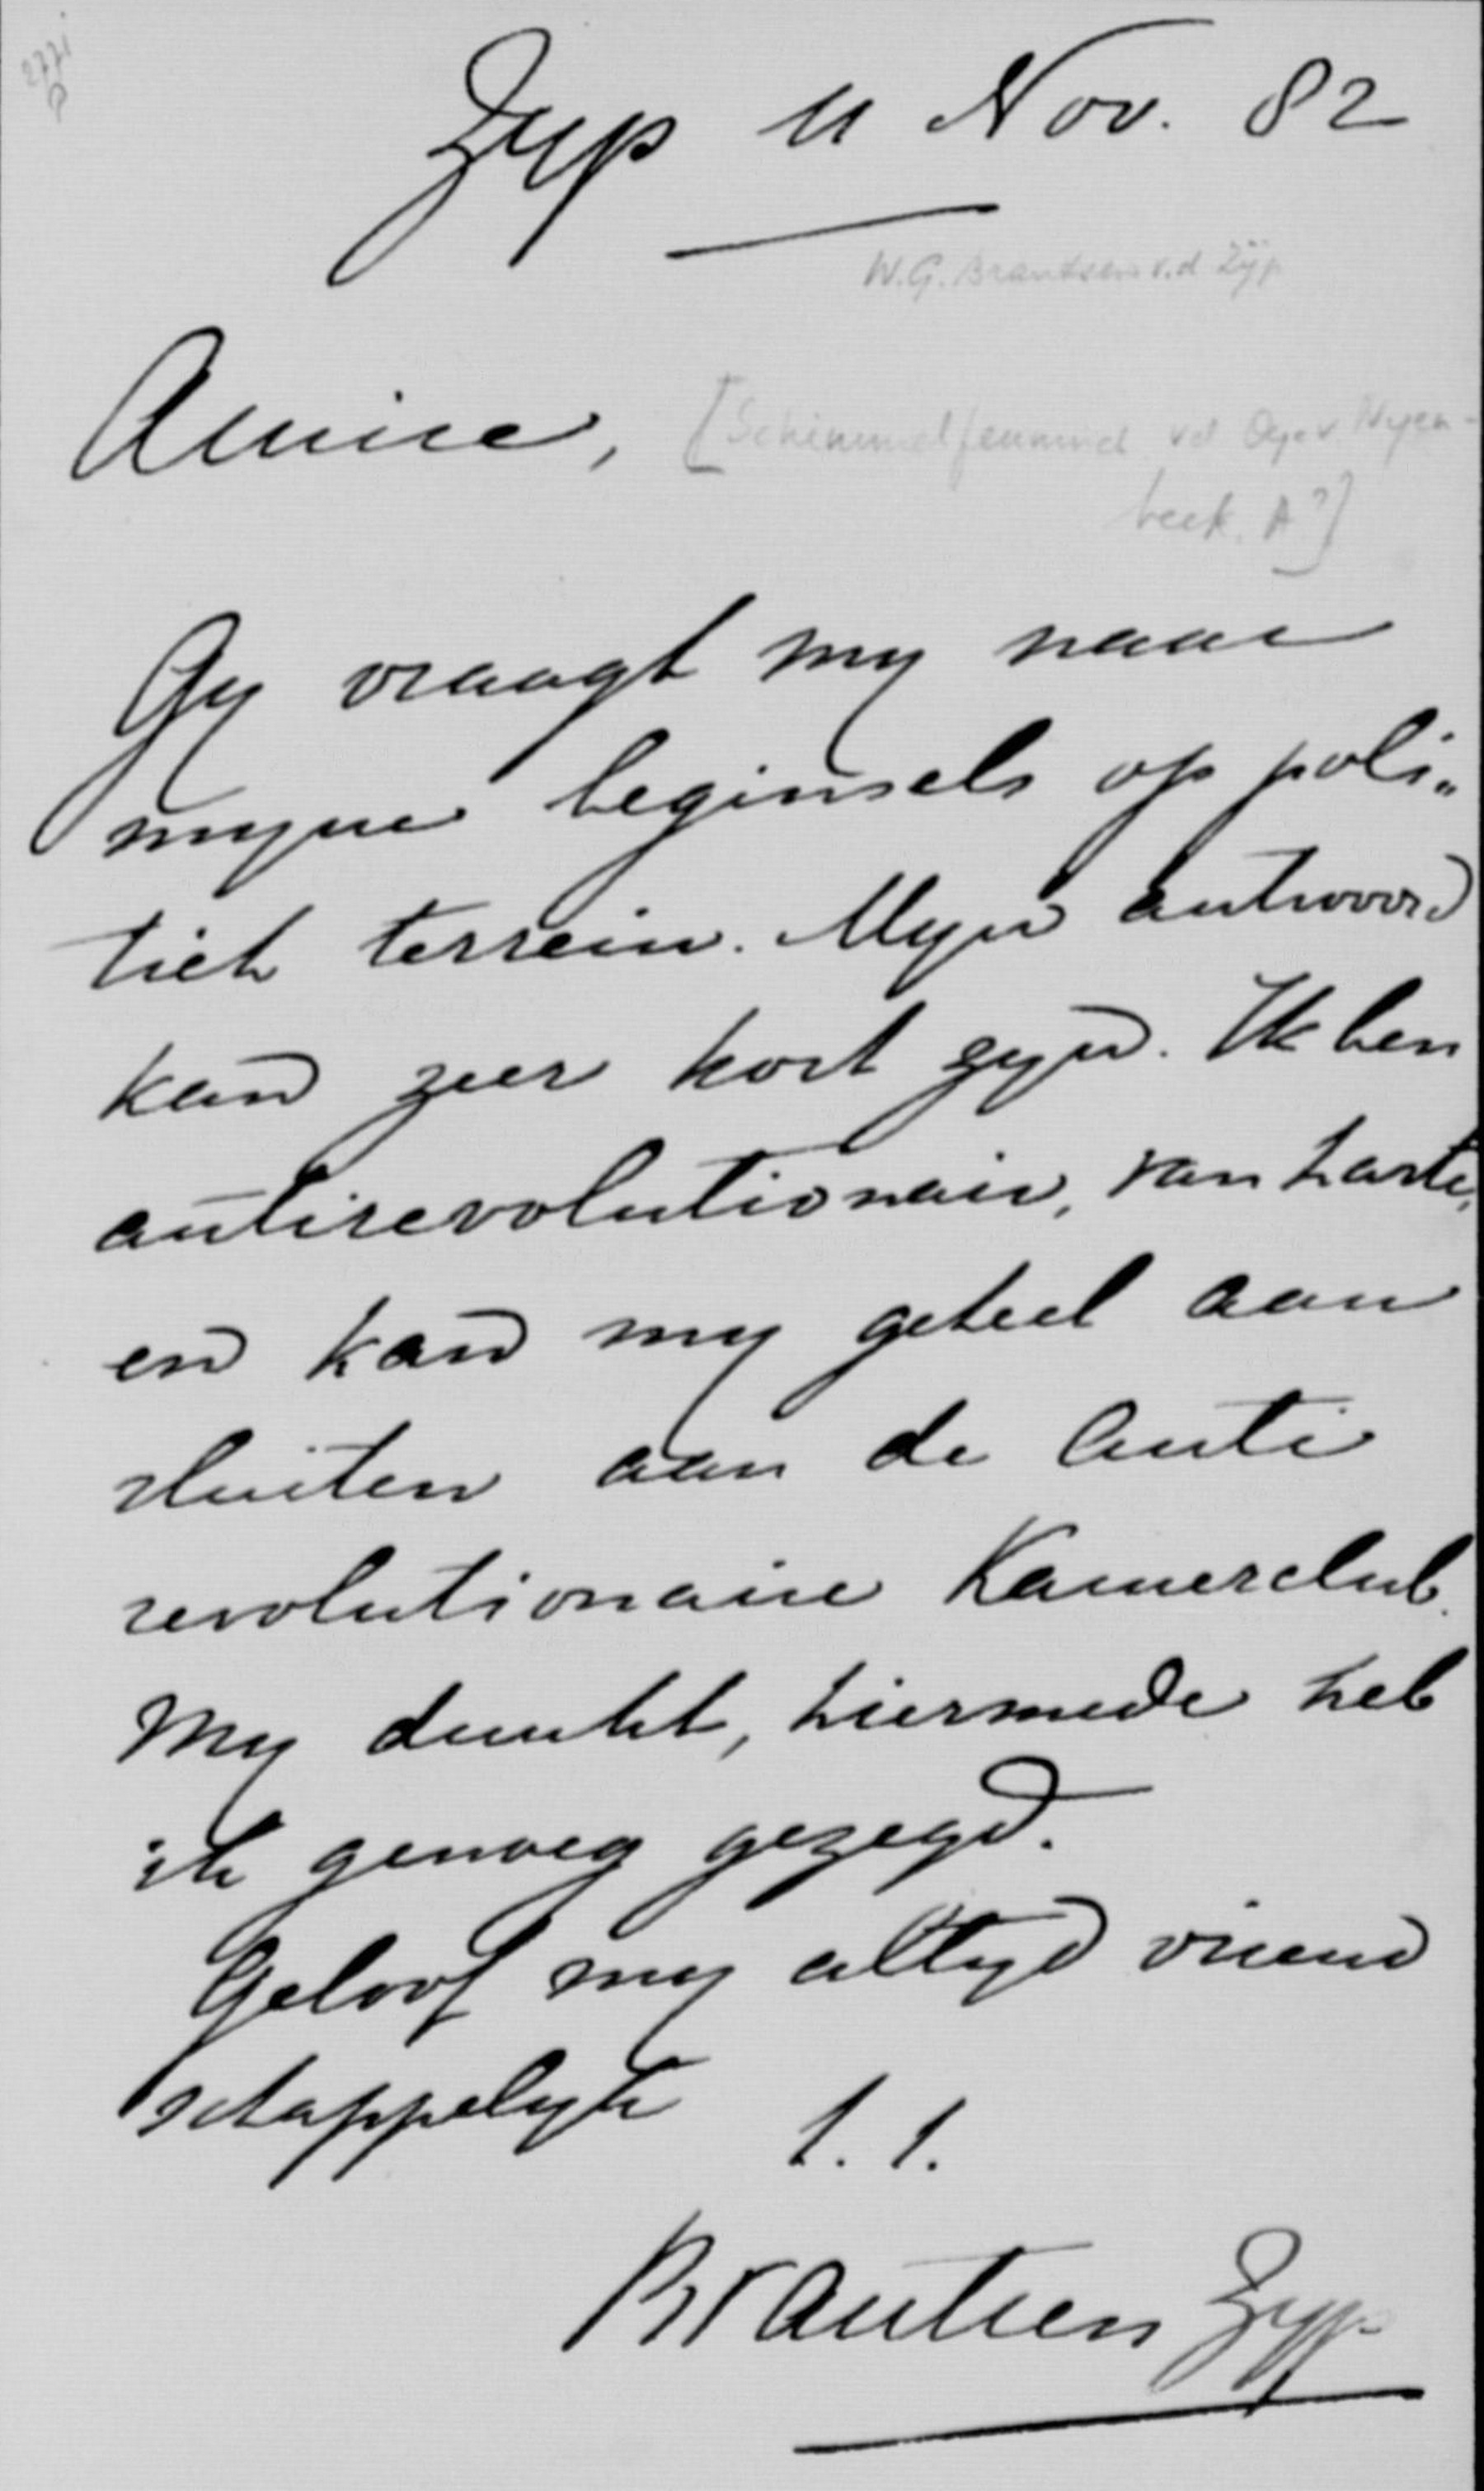 2771
Zyp 11 Nov. 82
W.G. Brantsen v.d. Zÿp
Amice,
[Schimmelpenninck vd Oye v. Nyen-
beek. A?]
Gy vraagt my naar
myne beginsels op poli„
tiek terrein. Myn antwoord
kan zeer kort zyn. Ik ben
antirevolutionair, van harte,
en kan my geheel aan
sluiten aan de Anti
revolutionaire Kamerclub.
My dunkt, hiermede heb
ik genoeg gezegd.
Geloof my altyd vriend
schappelyk t. t.
Brantsen Zyp